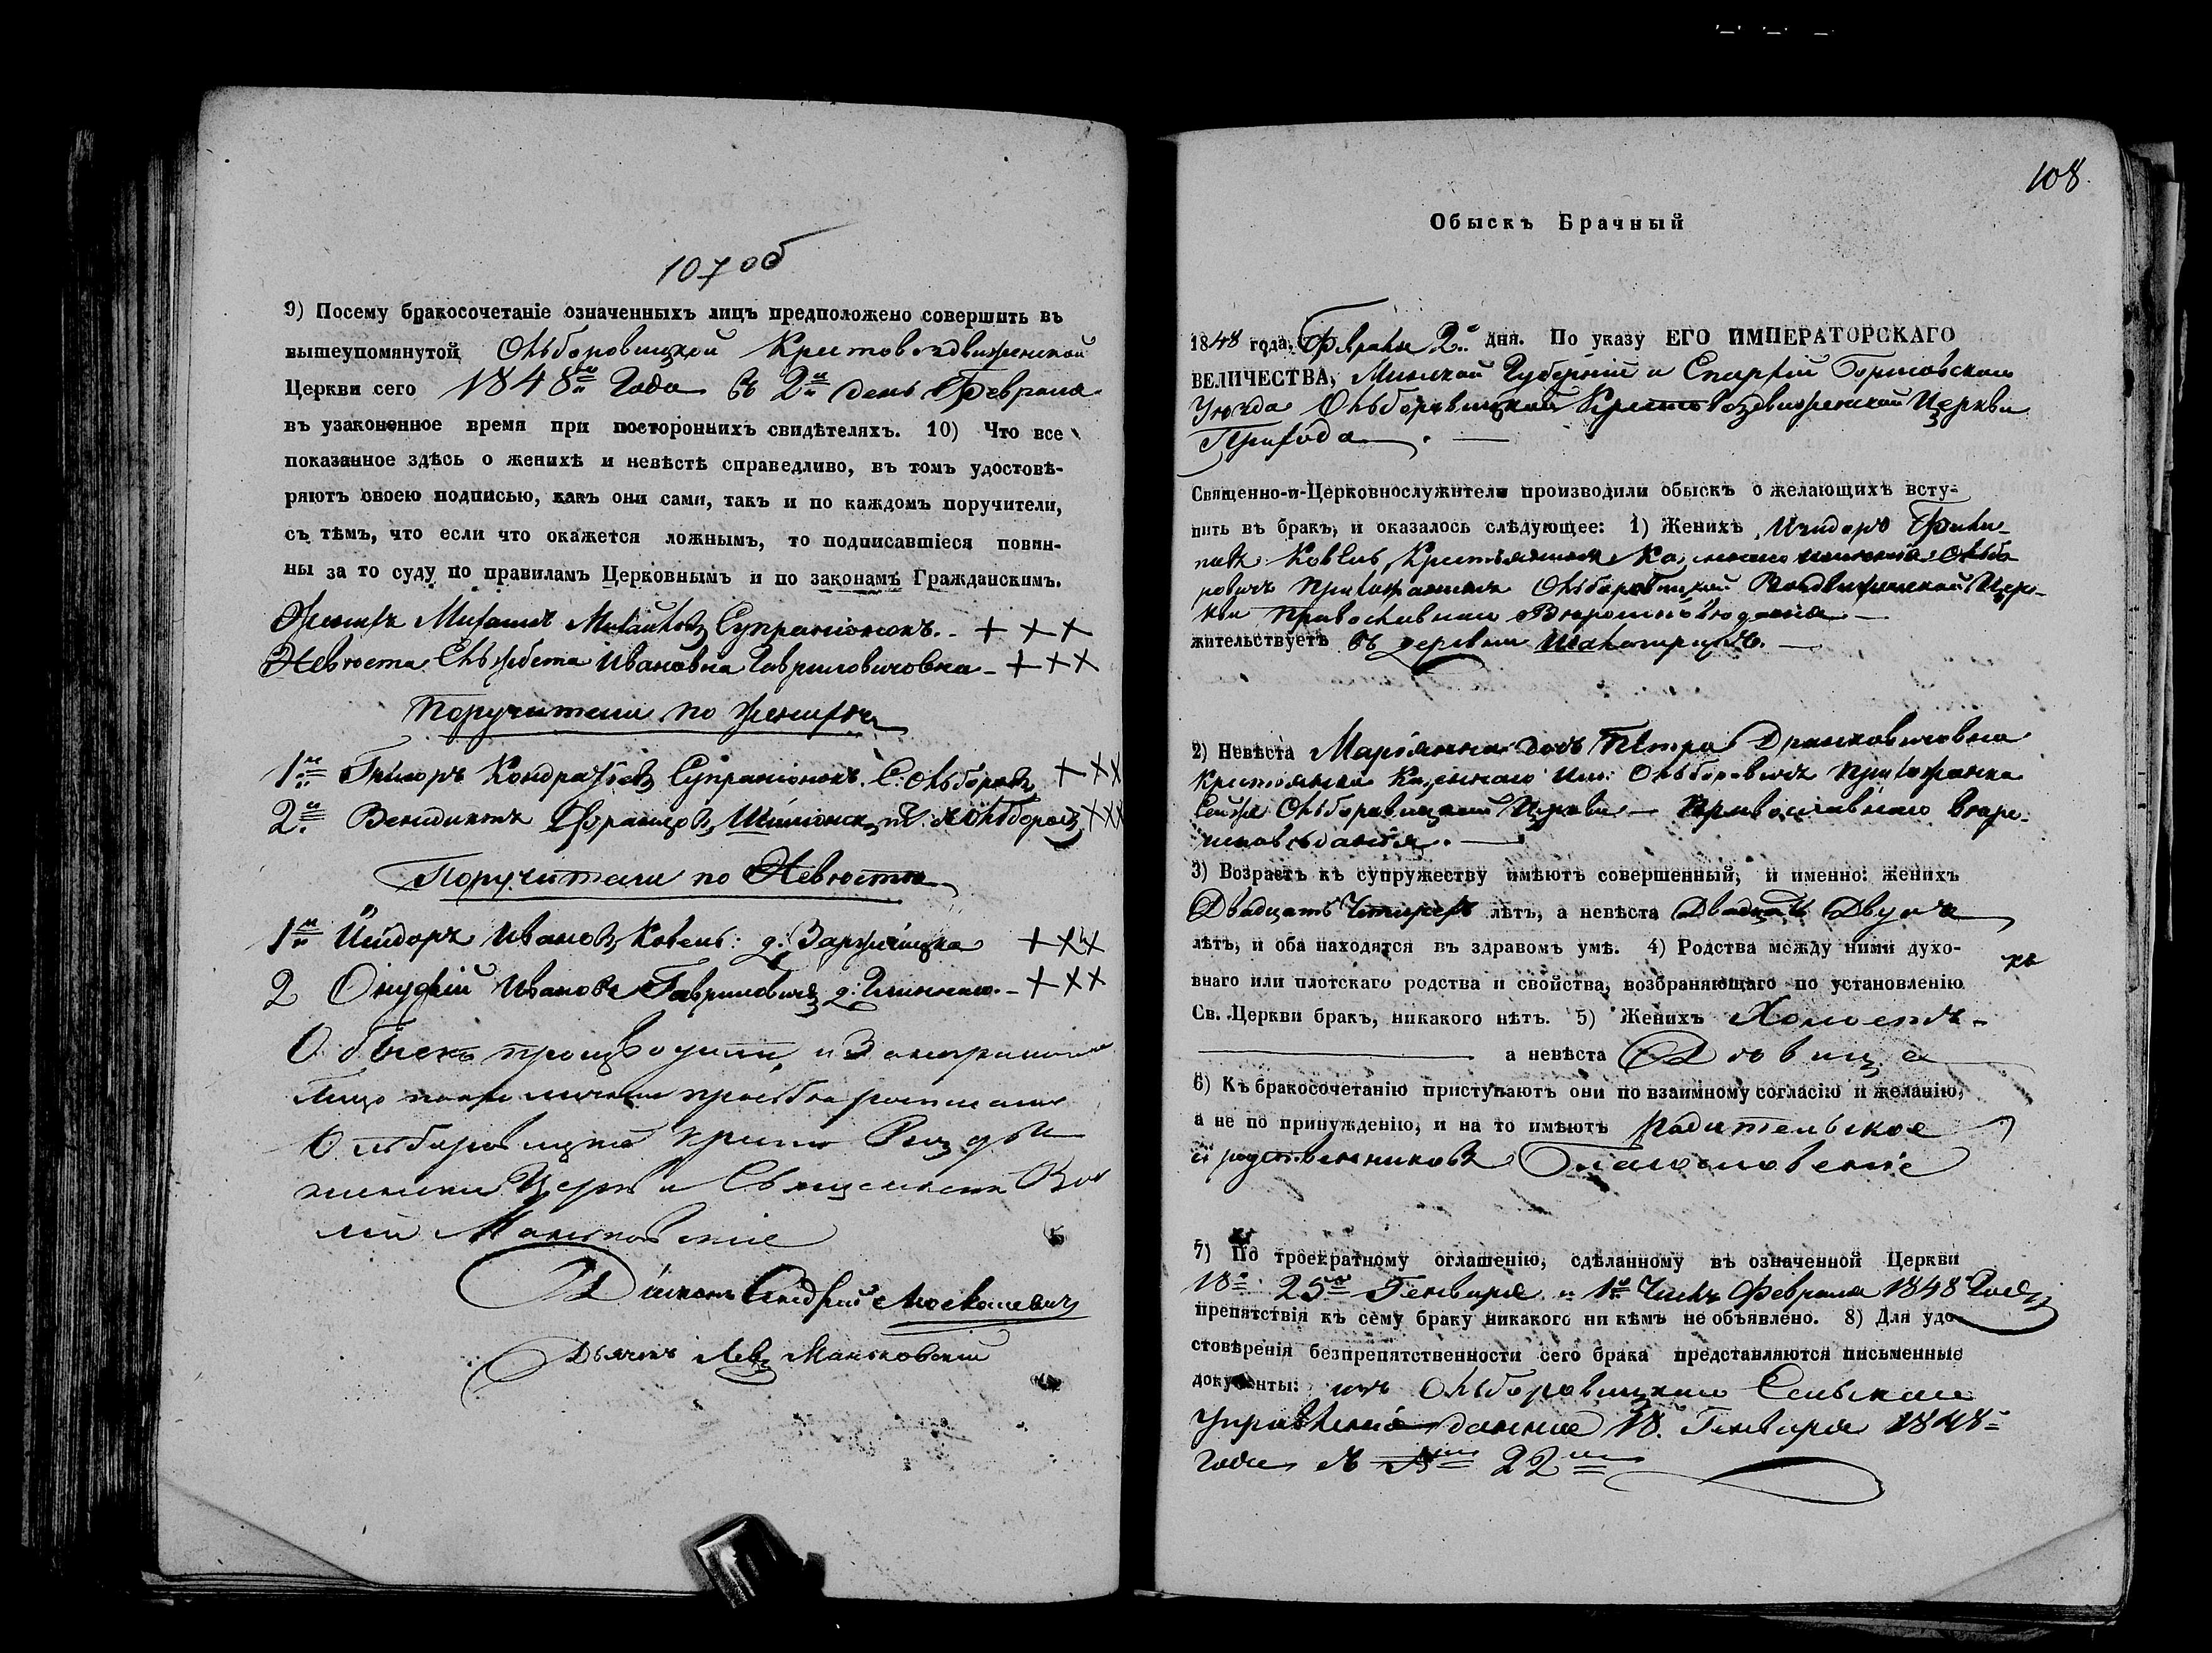 107 об
9) Посему бракосочетаніе означенныхъ лицъ предположено совершить въ
вышеупомянутой Ольборовицкой Крестовоздвиженской
Церкви сего 1848го Года въ 2й день Февраля
въ узаконенное время при постороннихъ свидѣтеляхъ. 10) Что все
показанное здѣсь о женихѣ и невѣстѣ справедливо, въ томъ удостовѣ-
ряютъ своею подписью, какъ они сами, такъ и по каждомъ поручители,
съ тѣмъ, что если что окажется ложнымъ, то подписавшіеся повин-
ны за то суду по правиламъ Церковнымъ и по законамъ Гражданскимъ.
Женихъ Михаилъ Михайловъ Супранионокъ. - + + +
Невѣста Ивановна Гавриловичовна - + + +
Поручители по женихѣ
1й Кондратьевъ Супранионокъ. С. Ольборов + + +
2й Венидиктъ + + +
Поручители по Невѣстѣ
1й Исидоръ Ивановъ Ковель: д. + + +
2 Онуфрій Ивановъ Гавриловичъ д. - + + +
Обыскъ производили и
Ольборовицкой Кресто Воздви
женской Церкви Священникъ
Маньковскіе
Діаконъ Андрей
Дьячекъ Левъ Маньковскій
108.
Обыскъ Брачный
1848 года, Февраля 2го дня. По указу ЕГО ИМПЕРАТОРСКАГО
ВЕЛИЧЕСТВА, Минской Губерніи и Епархіи Борисовскаго
Уѣзда Ольборовицкой Кресто Воздвиженской Церкви
Прихода. —
Священно-и-Церковнослужители производили обыскъ о желающихъ всту-
пить въ бракъ, и оказалось слѣдующее: 1) Женихъ Исидоръ Фили-
повъ Ковель, Крестьянинъ Казеннаго имѣнія Ольбо
ровичъ Прихожанинъ Ольборовицкой Воздвиженской Цер-
кви Православнаго Вѣроисповѣданія —
жительствуетъ въ деревни
2) Невѣста Маріанна дочь Петра Дранковичовна
Крестьянка Казеннаго Им: Ольборовичъ Прихожанка
Сей же Ольборовицкой Церкви — Православнаго вѣро-
исповѣданія. —
3) Возрастъ къ супружеству имѣютъ совершенный, и именно: женихъ
Двадцать Четырехъ лѣтъ, а невѣста Двадцать Двухъ
лѣтъ, и оба находятся въ здравомъ умѣ. 4) Родства между ними духо-
внаго или плотскаго родства и свойства, возбраняющаго по установленію
Св. Церкви бракъ, никакого нѣтъ. 5) Женихъ Холостъ -
а невѣста Дѣвица
6) Къ бракосочетанію приступаютъ они по взаимному согласію и желанію,
а не по принужденію, и на то имѣютъ Родительское
и родственниковъ Благословеніе
7) По троекратному оглашенію, сдѣланному въ означенной Церкви
18го 25го Генваря и 1го Числъ Февраля 1848 Года
препятствія къ сему браку никакого ни кѣмъ не объявлено. 8) Для удо-
стовѣренія безпрепятственности сего брака представляются письменные
документы: отъ Ольборовицкаго Сельскаго
Управленія данное 18. Генваря 1848
Года 22